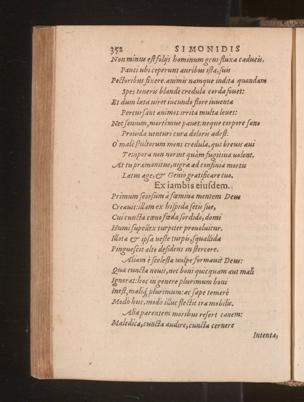 352 SIMONIDIS
Non minus est folijs hominum gens fluxa caducis.
Pauci ubi ceperunt auribus ista, suis
Pectoribus fixere. animis namque indita quondam
Spes teneris blandè credula corda fouet:
Et dum læta uiret iucundo flore iuuenta
Percursant animos irrita multa leues:
Nec senium, mortémue pauet: neque corpore sano
Prouida uenturi cura doloris adest.
O malè stultorum mens credula, quis breuis æui
Tempora non norint quàm fugitiua uolent.
At tu præmonitus, nigra ad confinia mortis
Latus age, & Genio gratificare tuo.
Ex iambis eiusdem.
Primum seorsum à fœmina mentem Deus
Creauit: illam ex hispida setis sue,
Cui cuncta cœno fœda sordido, domi
Humi supellex turpiter prouoluitur.
Illota & ipsa ueste turpis, squallida
Pinguescit alto desidens in stercore.
Aliam è scelesta uulpe formauit Deus:
Qua cuncta nouit, nec boni quicquam aut mali
Ignorat: hoc in genere plurimum boni
Inest, maliq́; plurimum: ac sæpe temerè
Modò huc, modò illuc flectit ira mobilis.
Alia parentem moribus refert canem:
Maledica, cuncta audire, cuncta cernere
Intenta,